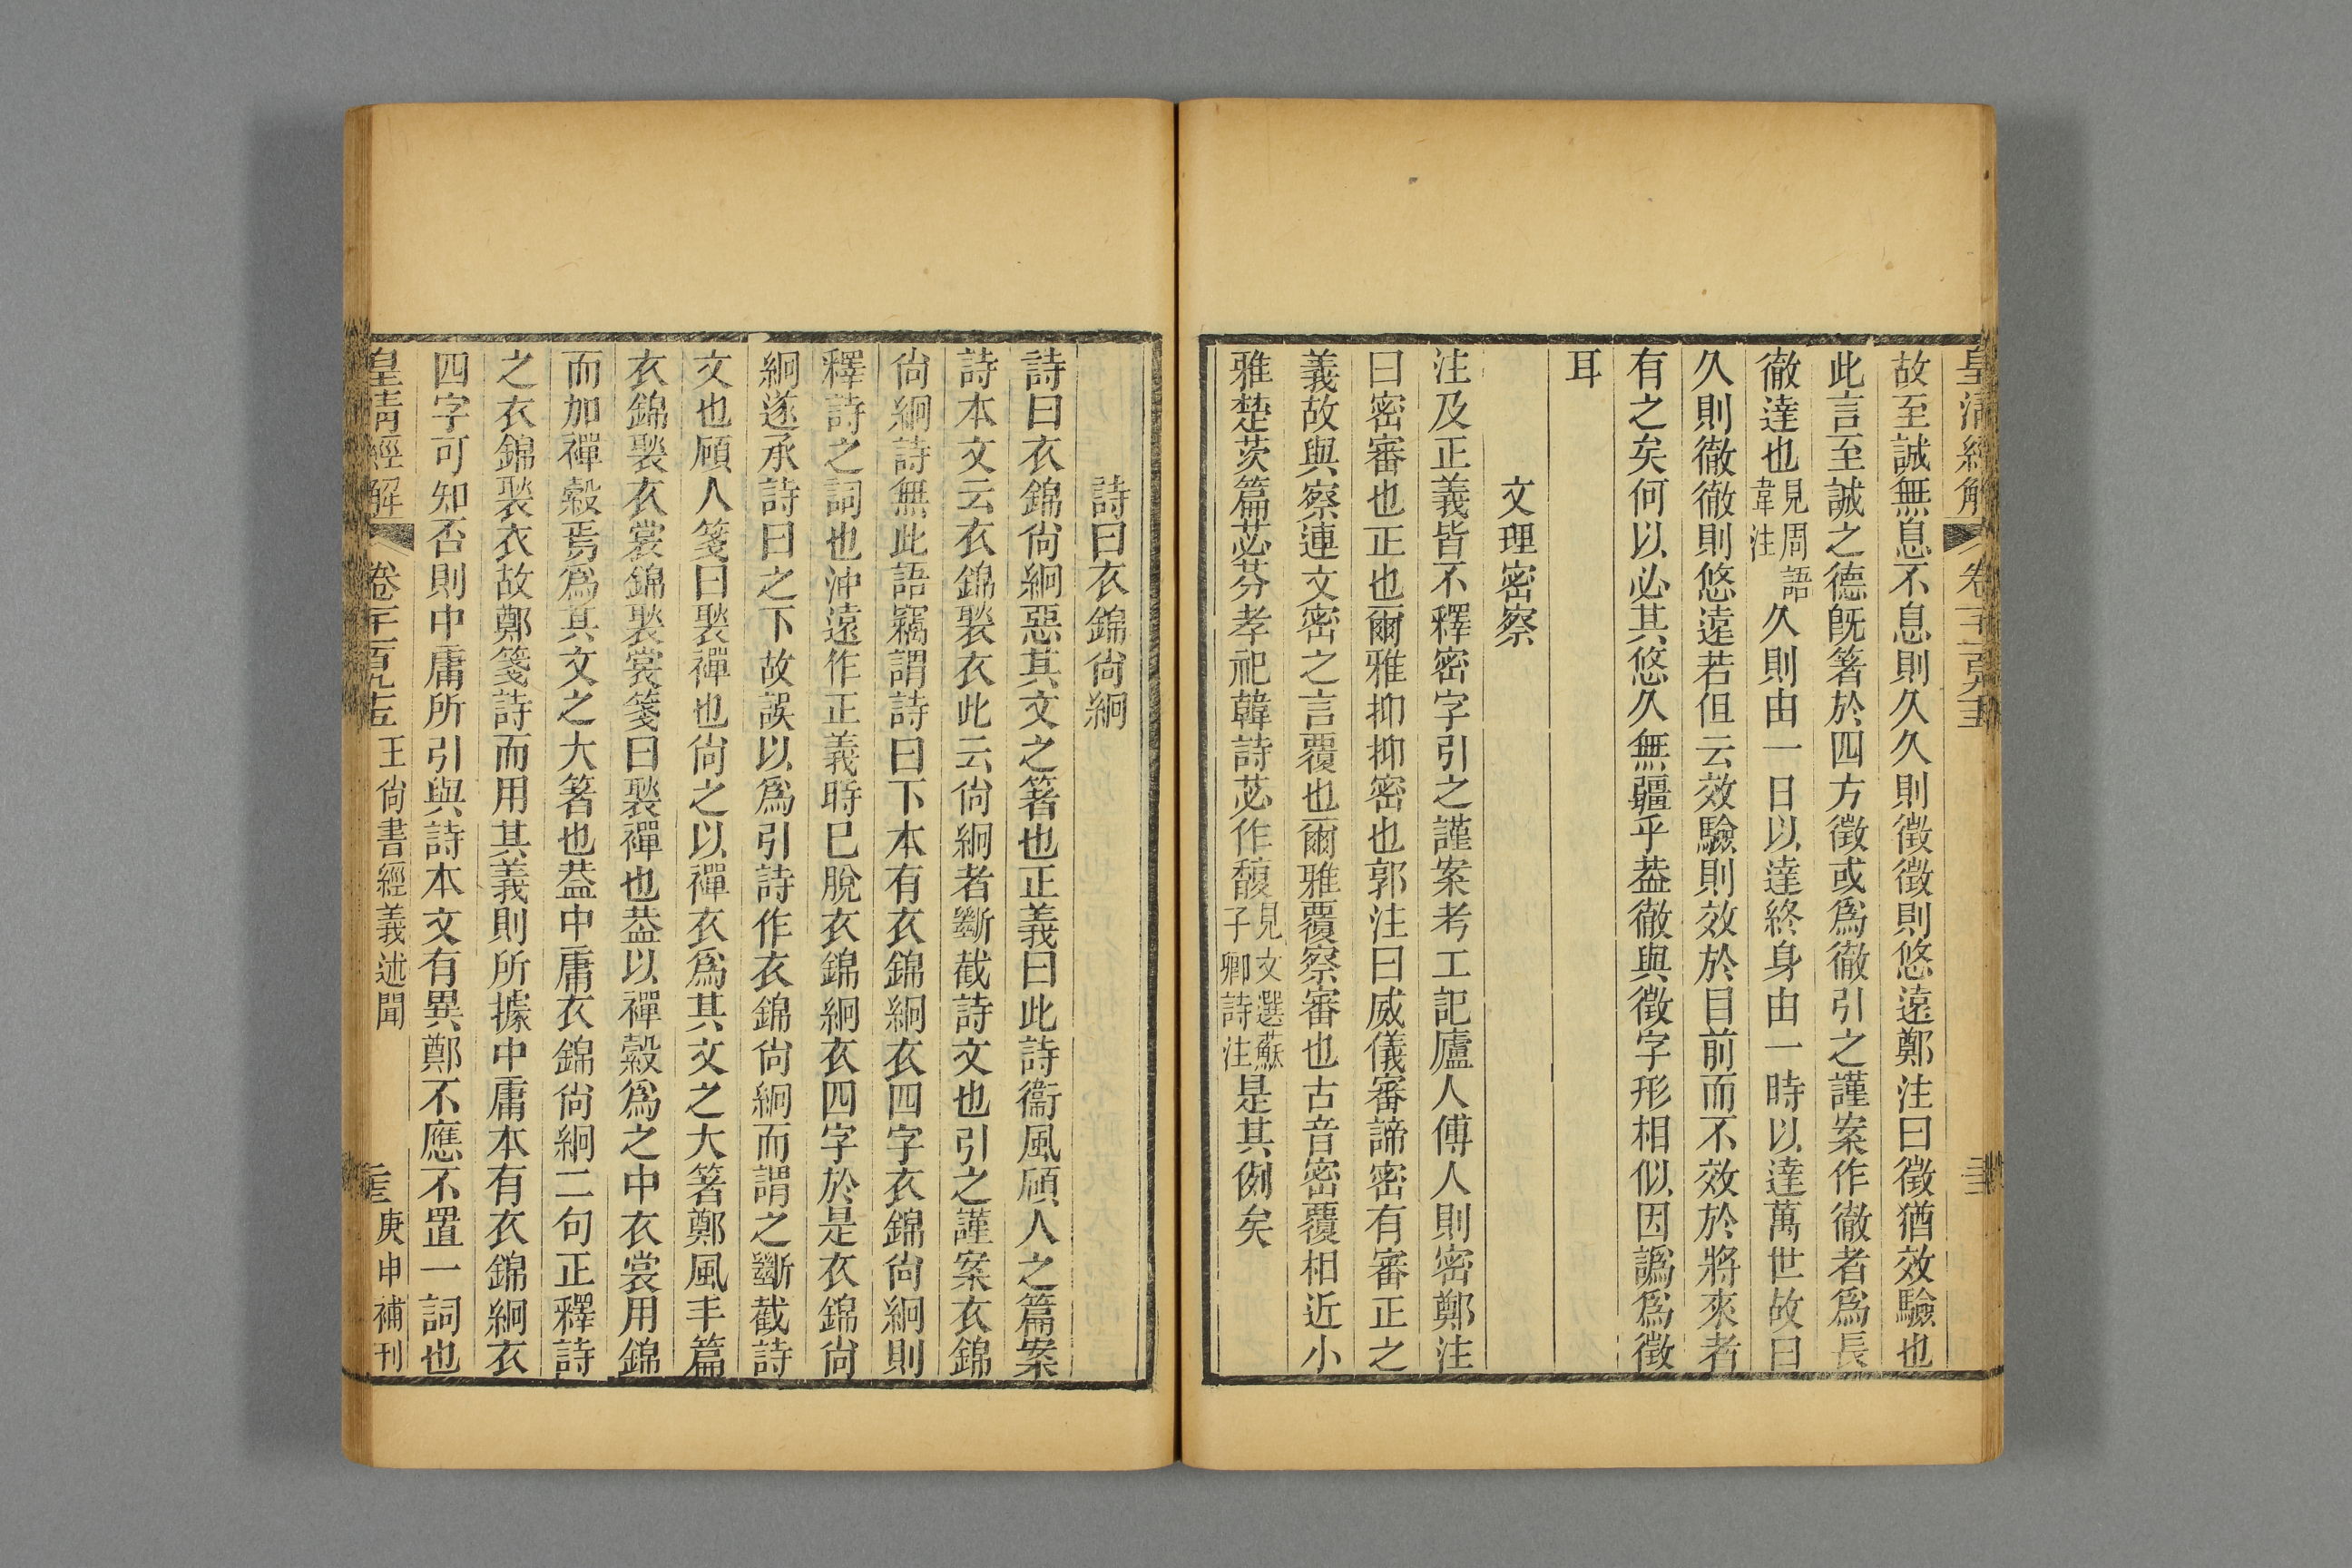 皇清經解
卷千二百九十五
故至誠無息不息則久久則徵徵則悠遠鄭注曰徵猶效驗也
此言至誠之德旣箸於四方徵或爲徹引之謹案作徹者爲長
徹達也見周語韋注久則由一日以達終身由一時以達萬世故曰
久則徹徹則悠遠若但云效驗則效於目前而不效於將來者
有之矣何以必其悠久無疆乎葢徹與徵字形相似因譌爲徵
耳
文理密察
注及正義皆不釋密字引之謹案考工記廬人傅人則密鄭注
曰密審也正也爾雅抑抑密也郭注曰威儀審諦密有審正之
義故與察連文密之言覆也爾雅覆察審也古音密覆相近小
雅楚茨篇苾芬孝祀韓詩苾作馥見文選蘇子卿詩注是其例矣
詩曰衣錦尙絅
詩曰衣錦尙絅惡其文之箸也正義曰此詩衞風碩人之篇案
詩本文云衣錦褧衣此云尙絅者斷截詩文也引之謹案衣錦
尙絅詩無此語竊謂詩曰下本有衣錦絅衣四字衣錦尙絅則
釋詩之詞也沖遠作正義時已脫衣錦絅衣四字於是衣錦尙
絅遂承詩曰之下故誤以爲引詩作衣錦尙絅而謂之斷截詩
文也碩人箋曰褧襌也尙之以襌衣爲其文之大箸鄭風丰篇
衣錦褧衣裳錦褧裳箋曰褧襌也葢以襌縠爲之中衣裳用錦
而加襌縠焉爲其文之大箸也葢中庸衣錦尙絅二句正釋詩
之衣錦褧衣故鄭箋詩而用其義則所據中庸本有衣錦絅衣
四字可知否則中庸所引與詩本文有異鄭不應不置一詞也
皇清經解
卷千二百九十五
王尙書經義述聞
庚申補刊